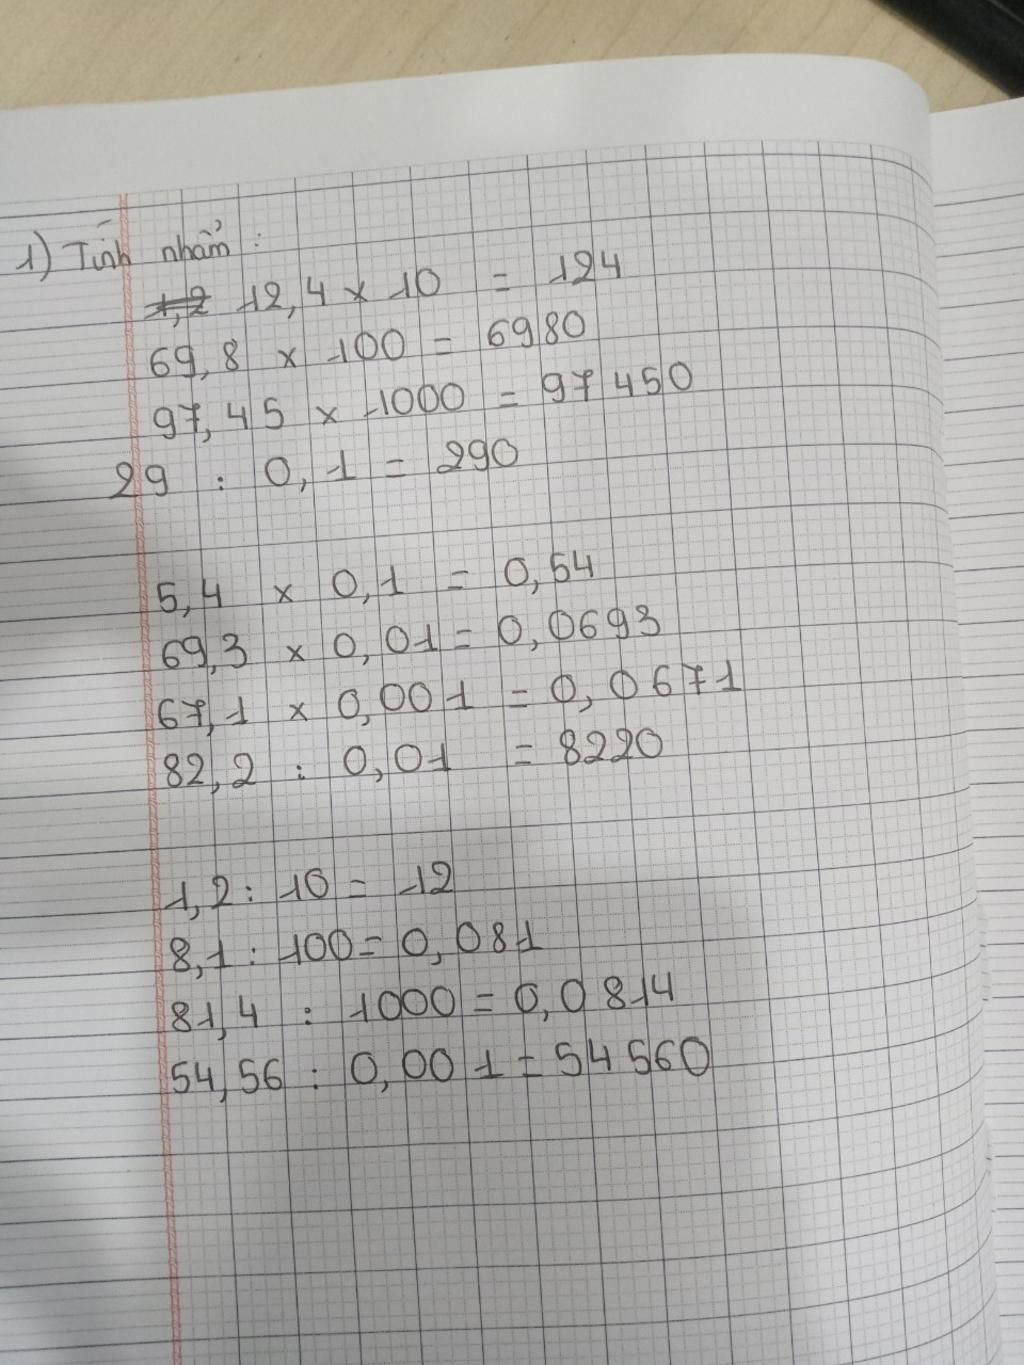 1) Tính nhẩm :
1,2 12,4 x 10 = 124
69,8 x 100 = 6980
97,45 x 1000 = 97 450
29 : 0,1 = 290
5,4 x 0,1 = 0,54
69,3 x 0,01 = 0,0693
67,1 x 0,001 = 0,0671
82,2 : 0,01 = 8220
1,2 : 10 = 12
8,1 : 100 = 0,081
81,4 : 1000 = 0,0814
54,56 : 0,001 = 54 560